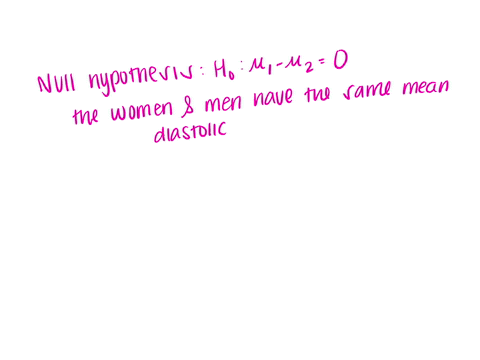 Null hypothesis: H₀: μ₁-μ₂=0
the women & men have the same mean
diastolic